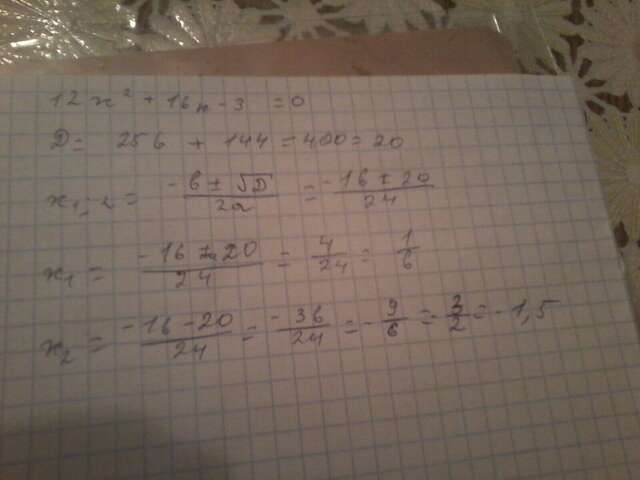 12x² + 16x - 3 = 0
D = 256 + 144 = 400 = 20
x₁,₂ = -b ± √D / 2a = -16 ± 20 / 24
x₁ = -16 + 20 / 24 = 4/24 = 1/6
x₂ = -16 - 20 / 24 = - 36/24 = - 9/6 = 3/2 = - 1,5